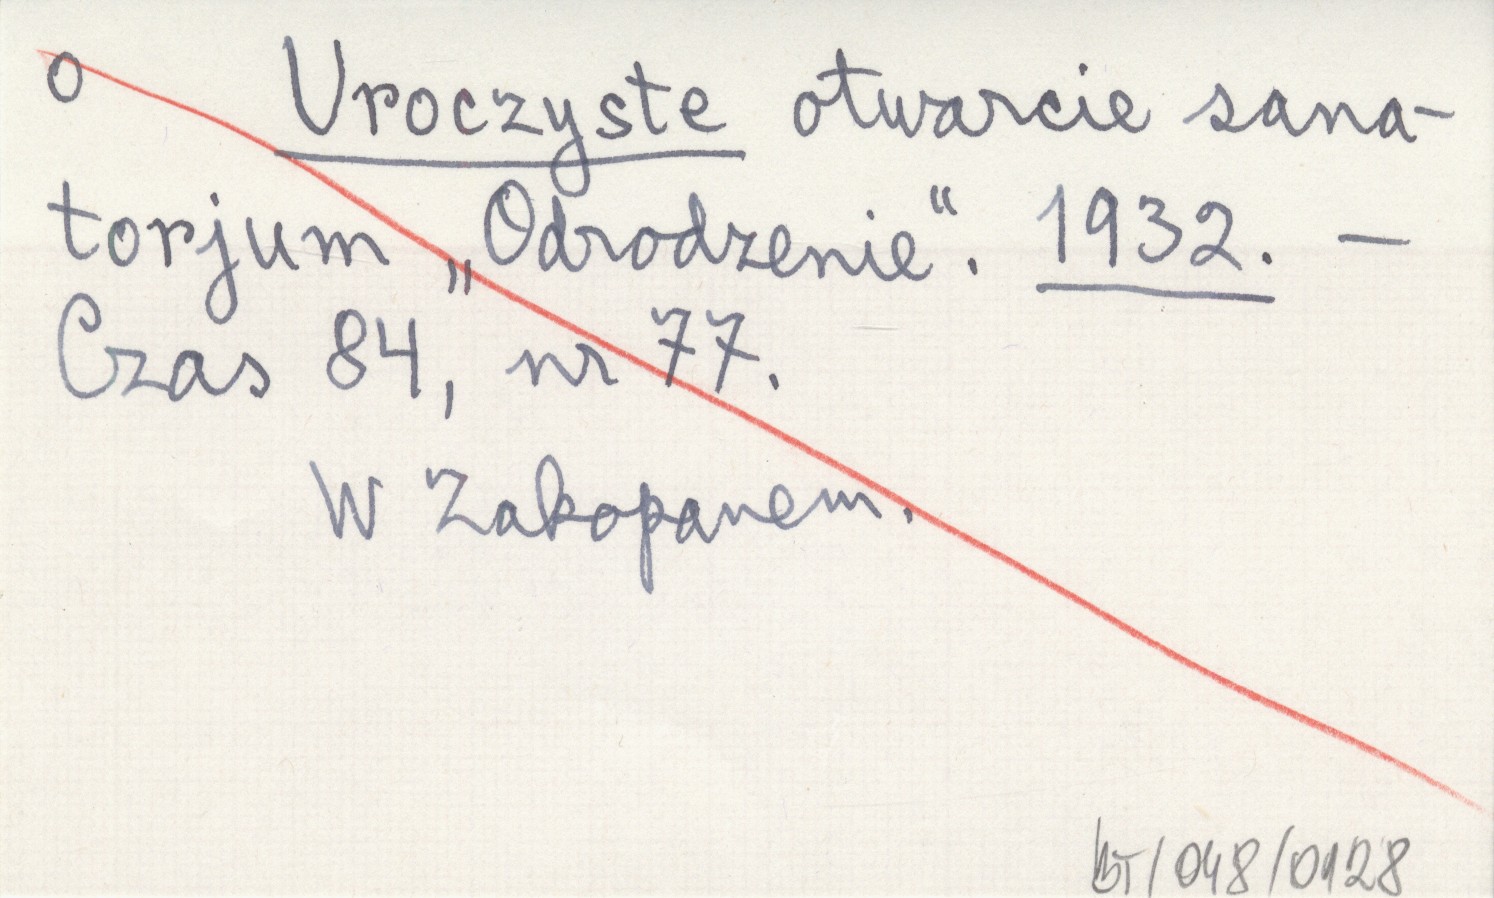 o Uroczyste otwarcie sana-
torjum „Odrodzenie“. 1932. —
Czas 84, nr 77.
W Zakopanem.
BT/048/0128